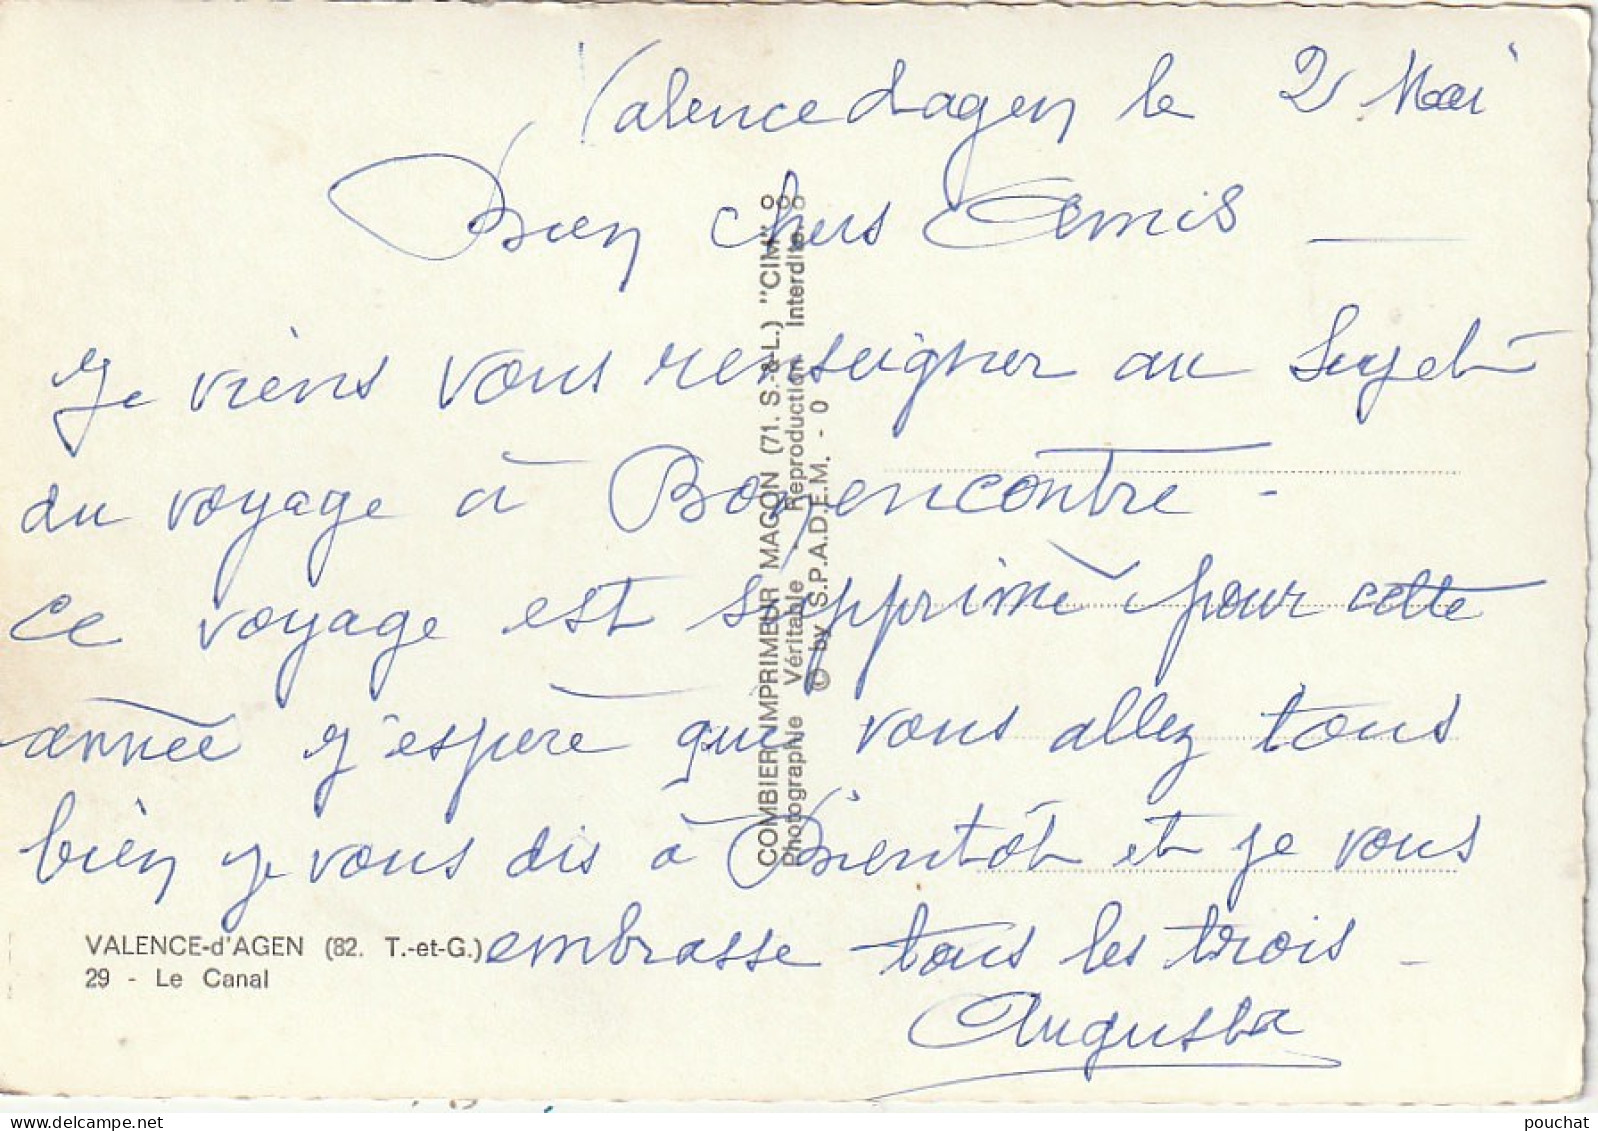 Valence d'agen le 2 Mai
Bien chers Amis
Je viens vous renseigner au Sujet
du voyage à Bonencontre -
Ce voyage est supprimé pour cette
année j'espère que vous allez tous
bien je vous dis à Bientôt et je vous
embrasse tous les trois -
Augusta
VALENCE-d'AGEN (82. T.-et-G.)
29 - Le Canal
COMBIER IMPRIMEUR MACON (71. S.-&-L.) "CIM"
Photographie Véritable - Reproduction Interdite.
© by S.P.A.D.E.M. - 0
pouchat